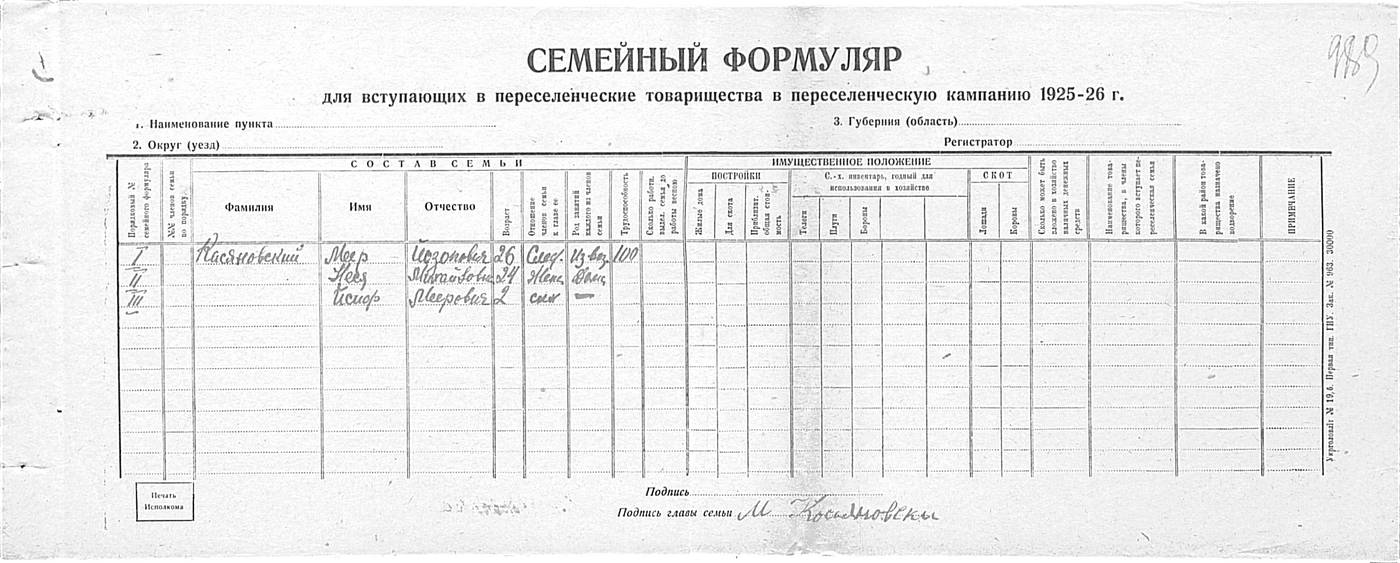 989
СЕМЕЙНЫЙ ФОРМУЛЯР
для вступающих в переселенческие товарищества в переселенческую кампанию 1925-26 г.
1. Наименование пункта
3. Губерния (область)
2. Округ (уезд)
Регистратор
СОСТАВ СЕМЬИ
ИМУЩЕСТВЕННОЕ ПОЛОЖЕНИЕ
ПОСТРОЙКИ
С.-х. инвентарь, годный для использования в хозяйстве
СКОТ
Порядковый № семейного формуляра
№№ членов семьи по порядку
Фамилия
Имя
Отчество
Возраст
Отношение членов семьи к главе ее
Род занятий каждого из членов семьи
Трудоспособность
Сколько работн. выдел. семья до работы весною
Жилые дома
Для скота
Приблизит. общая стоимость
Телеги
Плуги
Бороны
Лошади
Коровы
Сколько может быть вложено в хозяйство наличных денежных средств
Наименование товарищества, в члены которого вступает переселенческая семья
В какой район товарищества назначено водворение
ПРИМЕЧАНИЕ
I Касяновский Меер 26 Извоз 100
II 24 Жена Дома
III Иосиф Меерович 2 сын —
Печать Исполкома
Подпись
Подпись главы семьи М Косяновски
Укрголовліт № 19,6. Первая тип. ГИУ. Зак. № 963. 30000